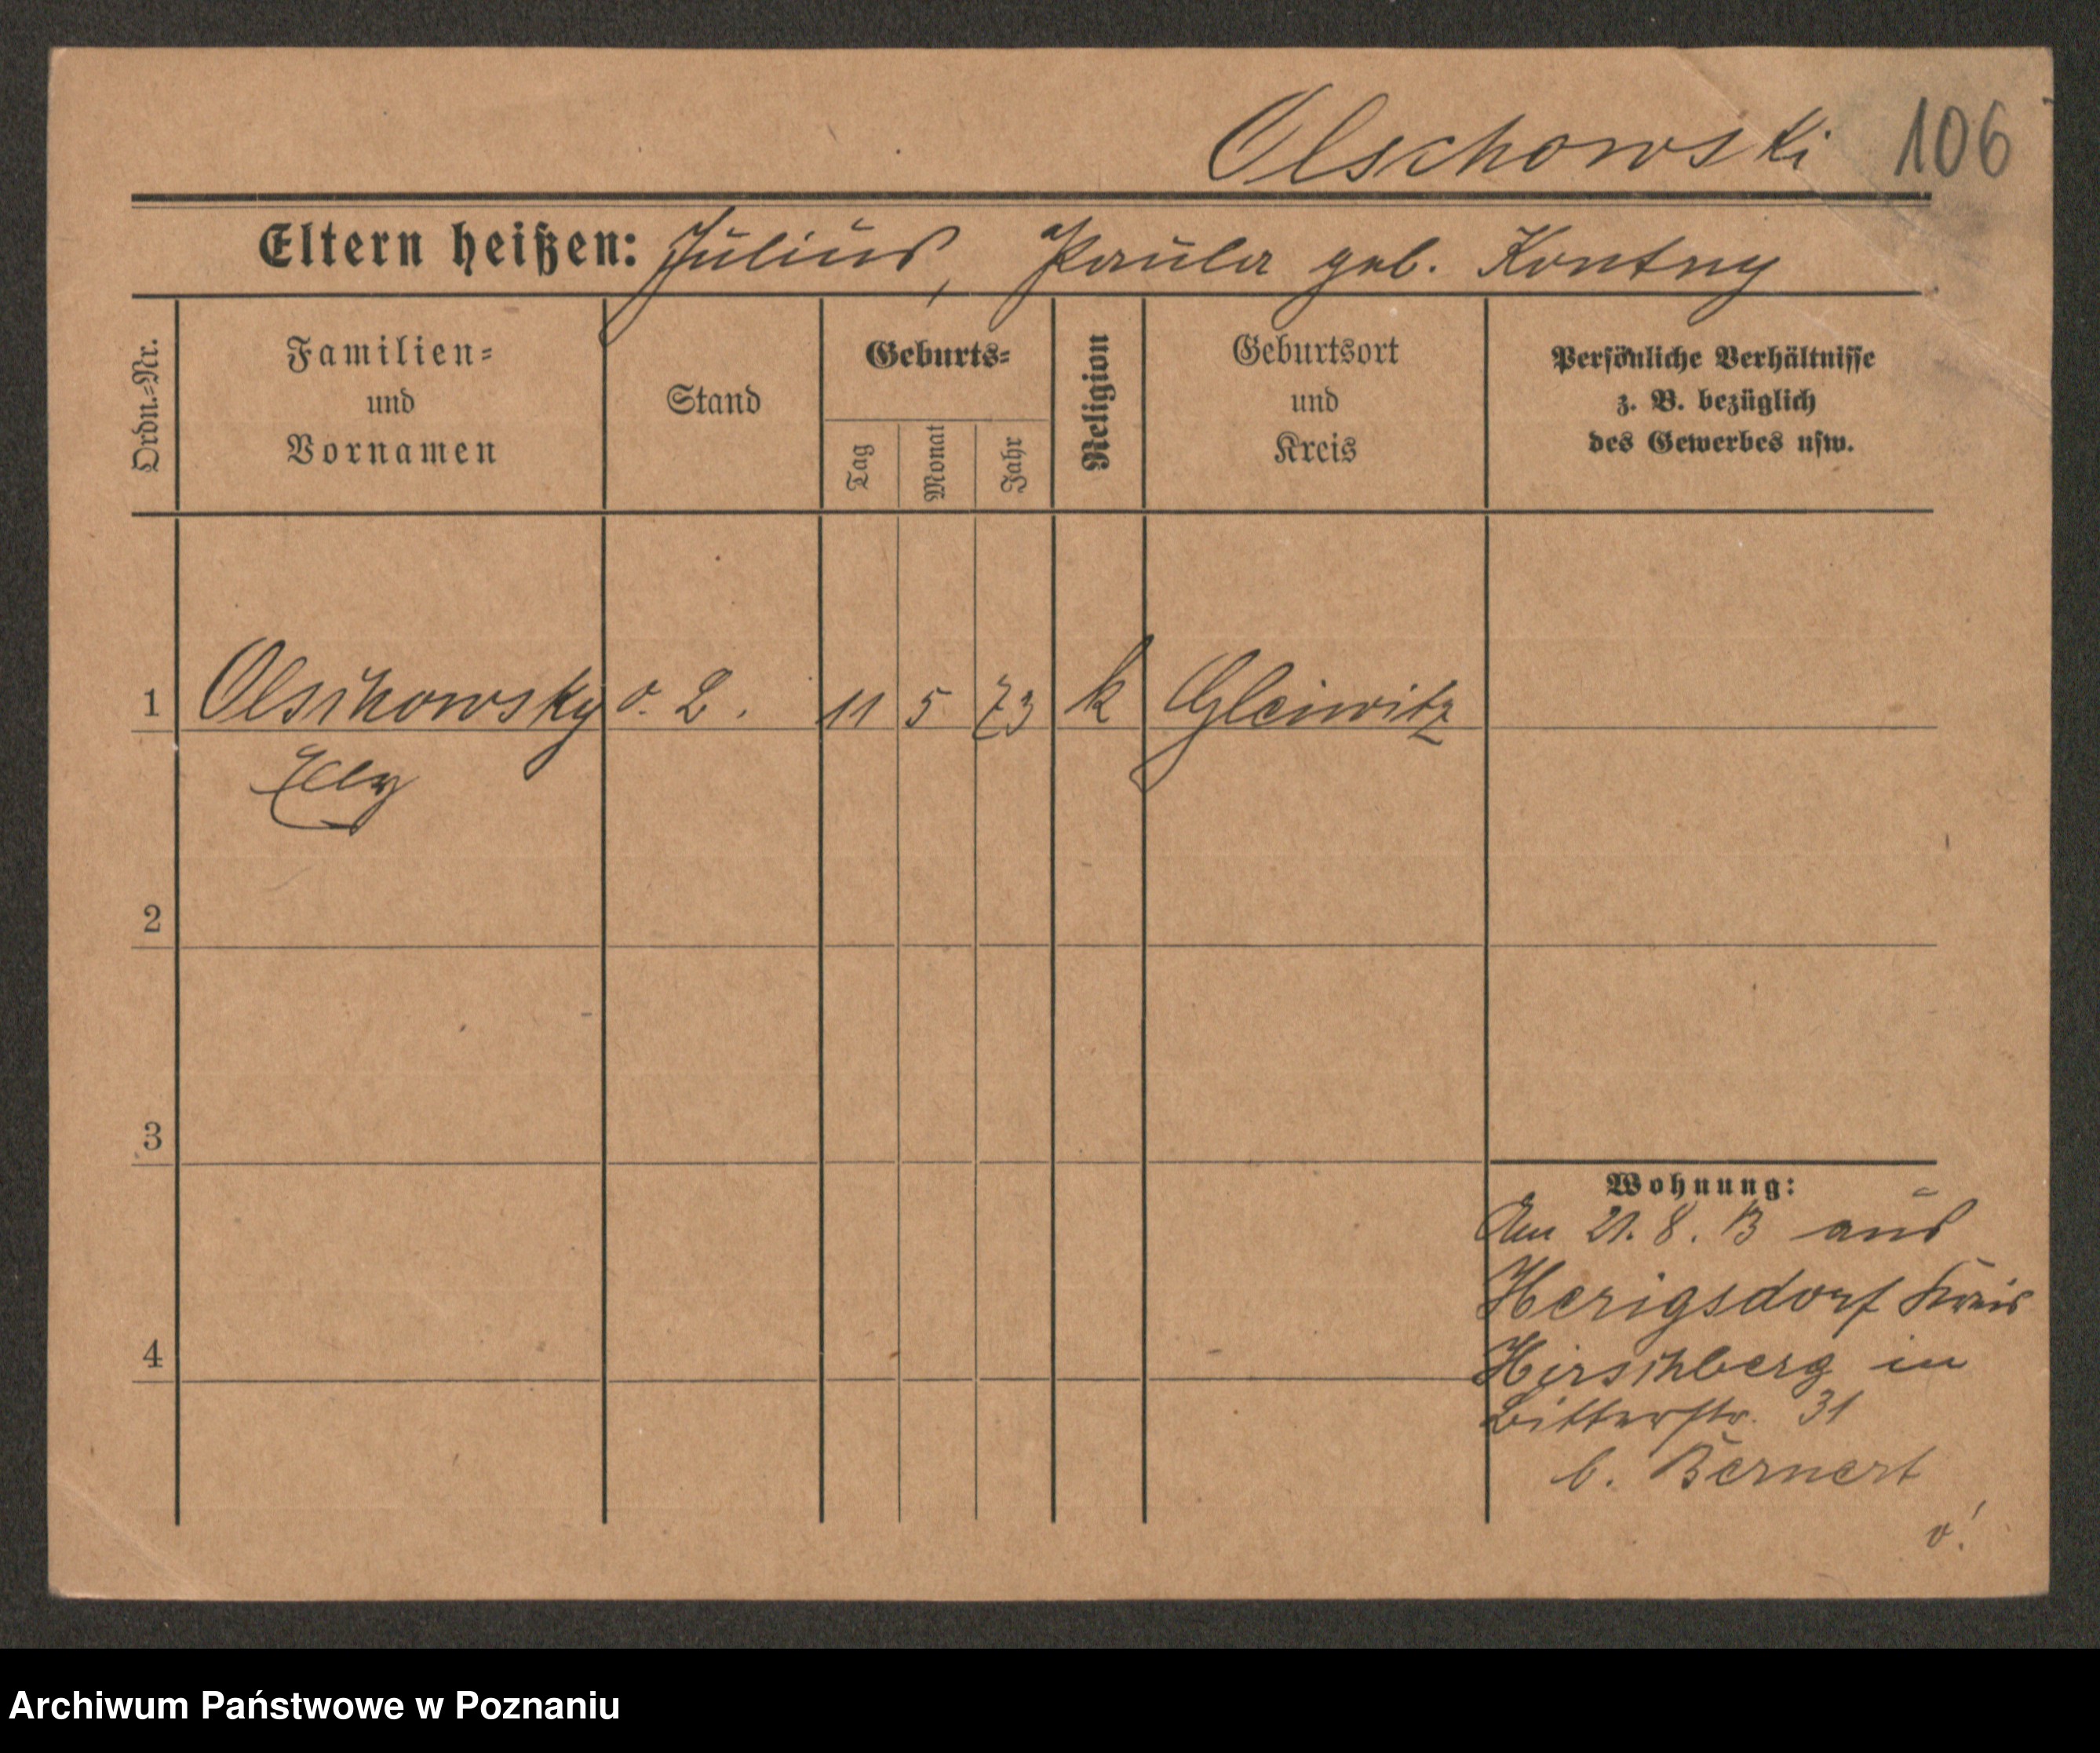 Olschowski 106
Eltern heißen: Julius, Paula geb. Kontny
Ordn.=Nr.
Familien=
und
Vornamen
Stand
Geburts=
Tag
Monat
Jahr
Religion
Geburtsort
und
Kreis
Persönliche Verhältnisse
z. B. bezüglich
des Gewerbes usw.
1 Olschowsky 11 5 73 k Gleiwitz
Elly
2
3
4
Wohnung:
Am 21. 8. 13 aus
Herigsdorf Kreis
Hirschberg in
31
b. Bernert
v!
Archiwum Państwowe w Poznaniu